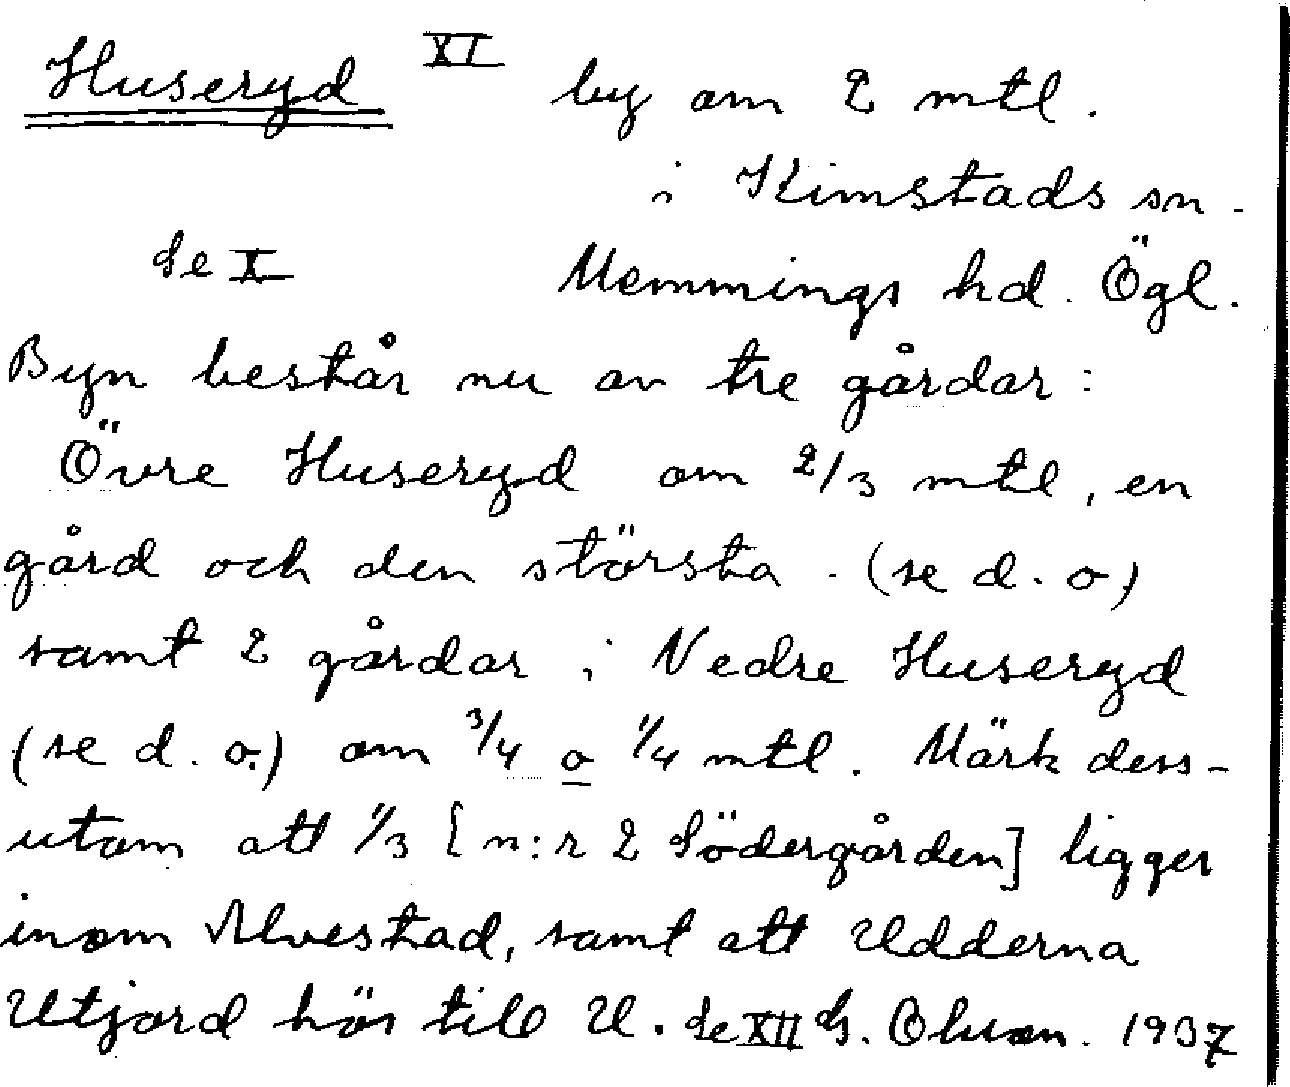 Huseryd XI by om 2 mtl.
i Kimstads sn.
Se X Memmings hd. Ögl.
Byn består nu av tre gårdar:
Övre Huseryd om 2/3 mtl, en
gård och den största. (se d. o)
samt 2 gårdar i Nedre Huseryd
(se d. o.) om 3/4 o 1/4 mtl. Märk dess-
utom att 1/3 [n:r 2 Södergården] ligger
inom Alvestad, samt att Udderna
Utjord hör till U. Se XII G. Olson. 1937